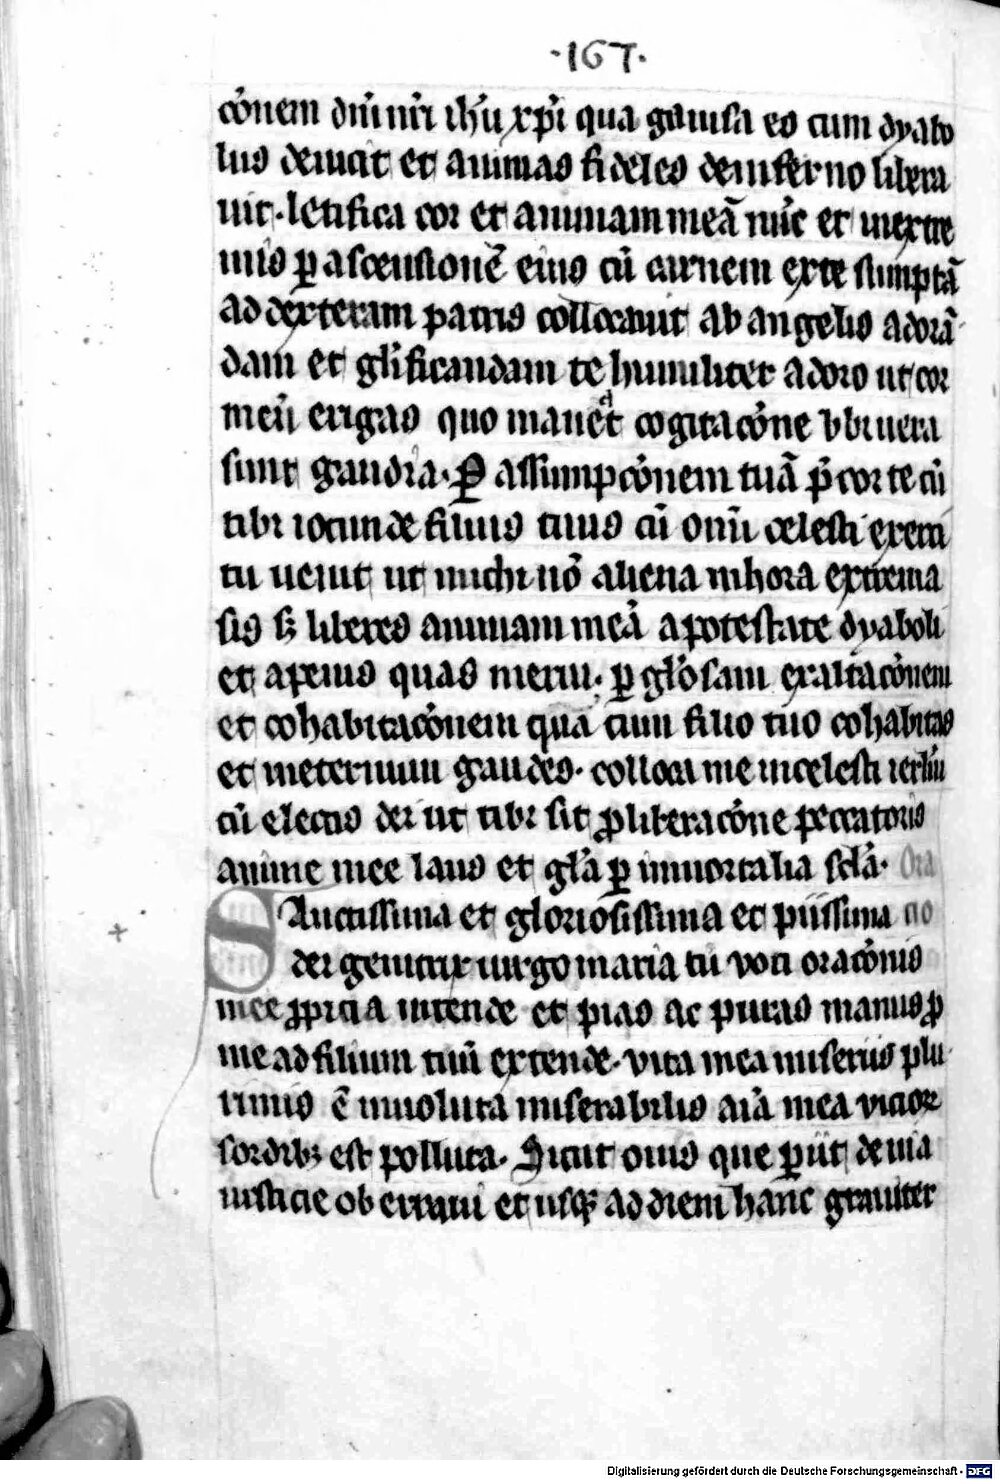 ·167·
cōnem dn̄i nr̄i ih̄u xp̄i qua gauisa es cum dyabo
lus deuicit et animas fideles de inferno libera
uit. letifica cor et animam meā nūc et in extre
mis ꝑ ascensionē eius cū carnem ex te sumptā
ad dexteram patris collocauit ab angelis adorā
dam et gl̄ificandam te humiliter adoro ut cor
meū erigas quo maneat cogitacōne vbi uera
sunt gaudia. Ꝑ assumpcōnem tuā p̄cor te cū
tibi iocunde filius tuus cū om̄i celesti exerci
tu uenit ut michi nō aliena in hora extrema
sis sꝫ liberes animam meā a potestate dyaboli
et a penis quas merui. ꝑ gl̄osam exaltacōnem
et cohabitacōnem quā cum filio tuo cohabitas
et in eternum gaudes. colloca me in celesti ierl̄m
cū electis dei ut tibi sit ꝓ liberacōne peccatoris
anime mee laus et gl̄a ꝑ inmortalia scl̄a. Ora
Sanctissima et gloriosissima et piissima cio
dei genitrix uirgo maria tu voci oracōnis
mee ꝓpicia intende et pias ac puras manus ꝓ
me ad filium tuū extende. vita mea miseriis plu
rimis ē inuoluta miserabilis aīa mea vicior̄
sordibꝫ est polluta. Sicut ouis que ꝑiit de uia
iusticie oberraui et usqꝫ ad diem hanc grauiter
Digitalisierung gefördert durch die Deutsche Forschungsgemeinschaft - DFG